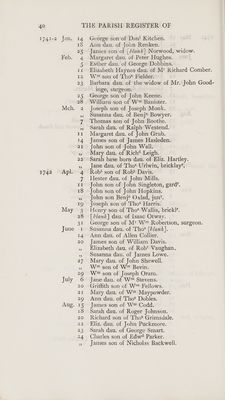 40 THE PARISH REGISTER OF
1741-2 Jan. 14 George son of Danl Kitchen.
18 Ann dau. of John Renken.
25 James son of [blank] Norwood, widow.
Feb. 4 Margaret dau. of Peter Hughes.
5 Esther dau. of George Dobbins.
11 Elizabeth Haynes dau. of Mr Richard Comber.
12 Wm son of Thos Fielder.
23 Barbara dau. of the widow of Mr. John Good-
inge, surgeon.
25 George son of John Keene.
28 William son of Wm Banister.
Mch. 2 Joseph son of Joseph Monk.
„ Susanna dau. of Benjn Bowyer.
7 Thomas son of John Boothe.
„ Sarah dau. of Ralph Westend.
11 Margaret dau. of John Grab.
14 James son of James Hasleden.
21 John son of John Wall.
„ Mary dau. of Richd Leigh.
22 Sarah base born dau. of Eliz. Hartley.
„ Jane dau. of Thos Urlwin, bricklayr.
1742 Apl. 4 Robt son of Robt Davis.
7 Hester dau. of John Mills.
11 John son of John Singleton, gardr.
18 John son of John Hopkins.
„ John son Benjn Oxlad, junr.
19 Joseph son of Thos Harris.
May 3 Henry son of Thos Wallis, brickr.
28 [blank] dau. of Isaac Otway.
31 George son of Mr Wm Robertson, surgeon.
June 1 Susanna dau. of Thos [blank].
14 Ann dau. of Allen Collier.
20 James son of William Davis.
„ Elizabeth dau. of Robt Vaughan.
„ Susanna dau. of James Lowe.
27 Mary dau. of John Shewell.
„ Wm son of Wm Bertn.
29 Wm son of Joseph Oram.
July 6 Jane dau. of Wm Stevens.
20 Griffith son of Wm Fellows.
21 Mary dau. of Wm Maypowder.
29 Ann dau. of Thos Dobles.
Aug. 15 James son of Wm Codd.
18 Sarah dau. of Roger Johnson.
20 Richard son of Thos Grimsdale.
22 Eliz. dau. of John Puckmore.
23 Sarah dau. of George Smart.
24 Charles son of Edwd Parker.
„ James son of Nicholas Backwell.